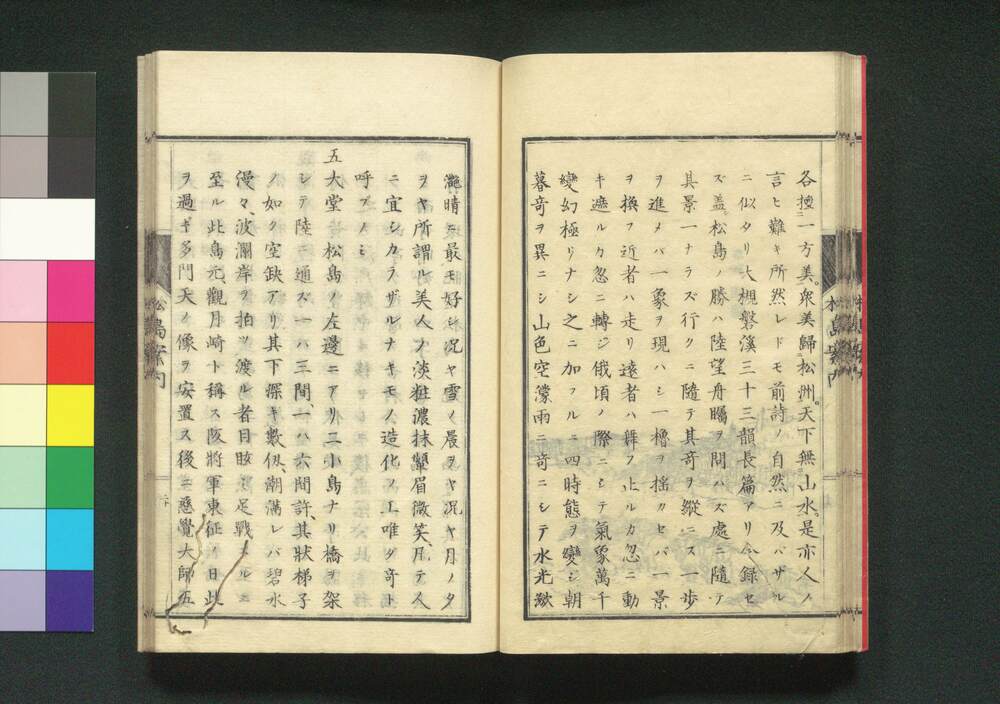 各擅一方美。衆美歸松洲。天下無山水。是亦人ノ
言ヒ難キ所然レドモ前詩ノ自然ニ及バザル
ニ似タリ大槻磐溪三十三韻長篇アリ今録セ
ズ蓋松島ノ勝ハ陸望舟矚ヲ問ハズ處ニ隨テ
其景一ナラズ行クニ隨テ其奇ヲ縱ニス一歩
ヲ進メバ一象ヲ現ハシ一櫓ヲ搖カセバ一景
ヲ換フ近者ハ走リ遠者ハ舞フ止ルカ忽ニ動
キ遮ルカ忽ニ轉ジ俄頃ノ際ニシテ氣象萬千
變幻極リナシ之ニ加フルニ四時態ヲ變シ朝
暮奇ヲ異ニシ山色空濛雨ニ奇ニシテ水光瀲
灔晴ニ最モ好シ况ヤ雪ノ晨ヲヤ况ヤ月ノ夕
ヲヤ所謂ル美人ノ淡粧濃抹顰眉微笑凡テ人
ニ宜シカラザルナキモノ造化ノ工唯ダ奇ト
呼ブノミ
五大堂 松島ノ左邊ニアリ二小島ナリ橋ヲ架
シテ陸ニ通ズ一ハ三間一ハ六間許其狀梯子
ノ如ク空缺アリ其下深キ數仭、潮滿レバ碧水
漫々、波瀾岸ヲ拍ツ渡ル者目眩シ足戰
至ル此島元、觀月崎ト稱ス阪將軍東征ノ日此
ヲ過ギ多門天ノ像ヲ安置ス後ニ慈覺大師五
松島案内